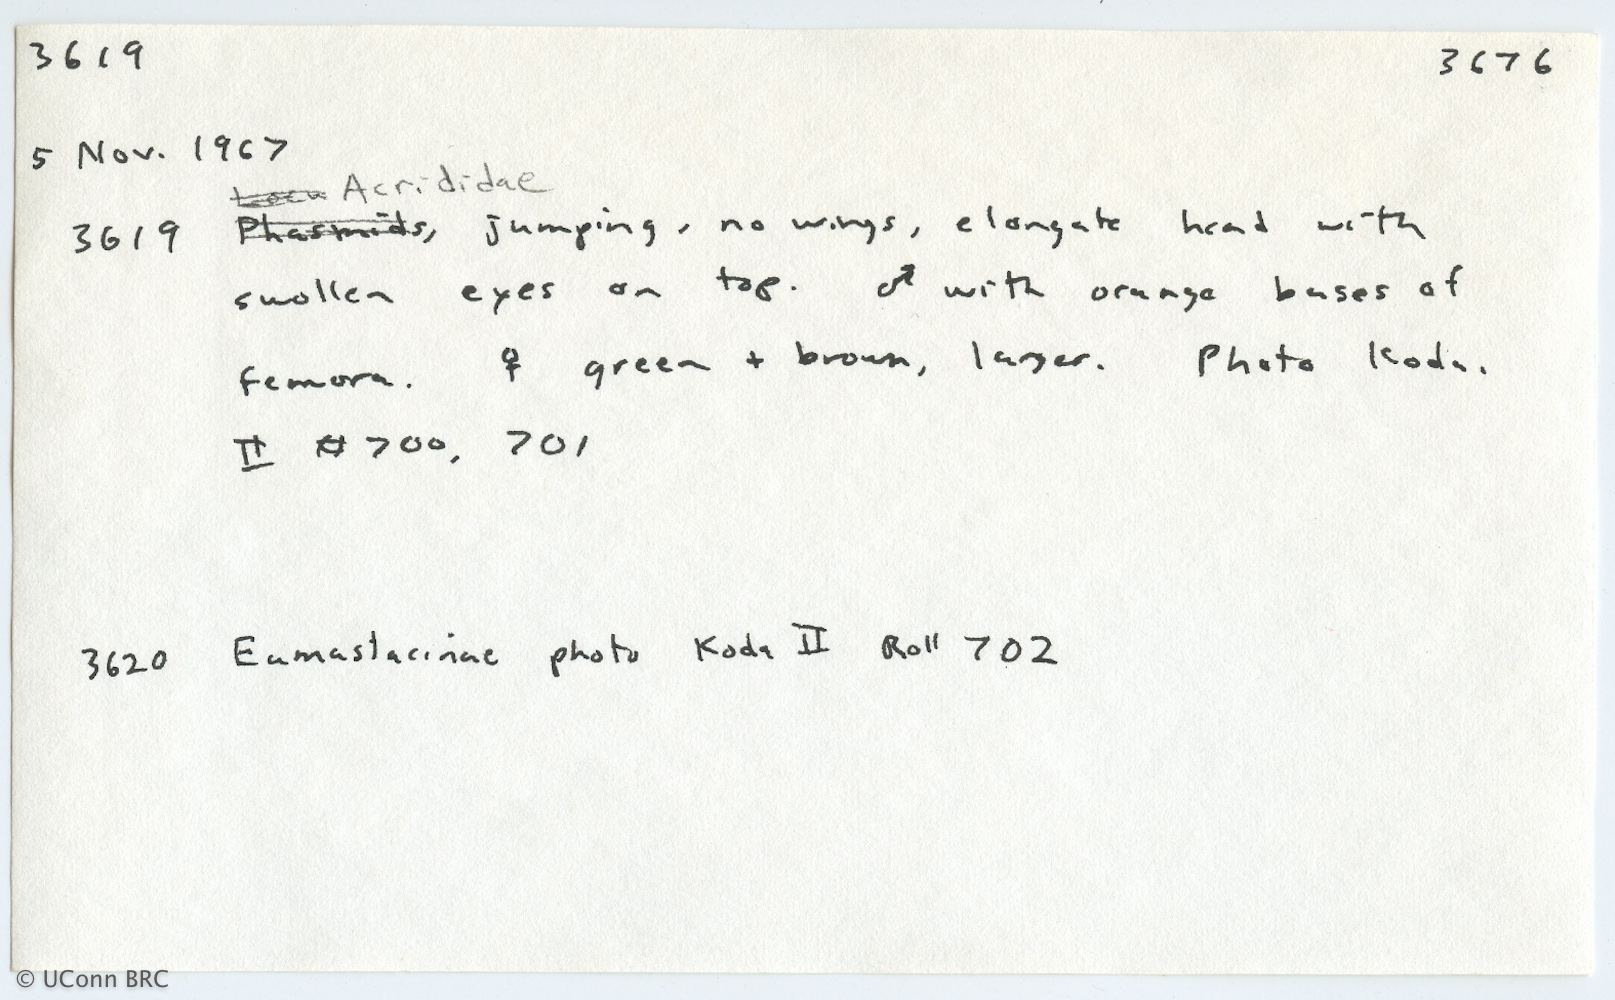 3619 3676
5 Nov. 1967
Acrididae
3619 Phasmids, jumping, no wings, elongate head with
swollen eyes on top. ♂ with orange bases of
femora. ♀ green + brown, larger. Photo Koda.
II # 700, 701
3620 Eumastacinae photo Koda II Roll 702
© UConn BRC